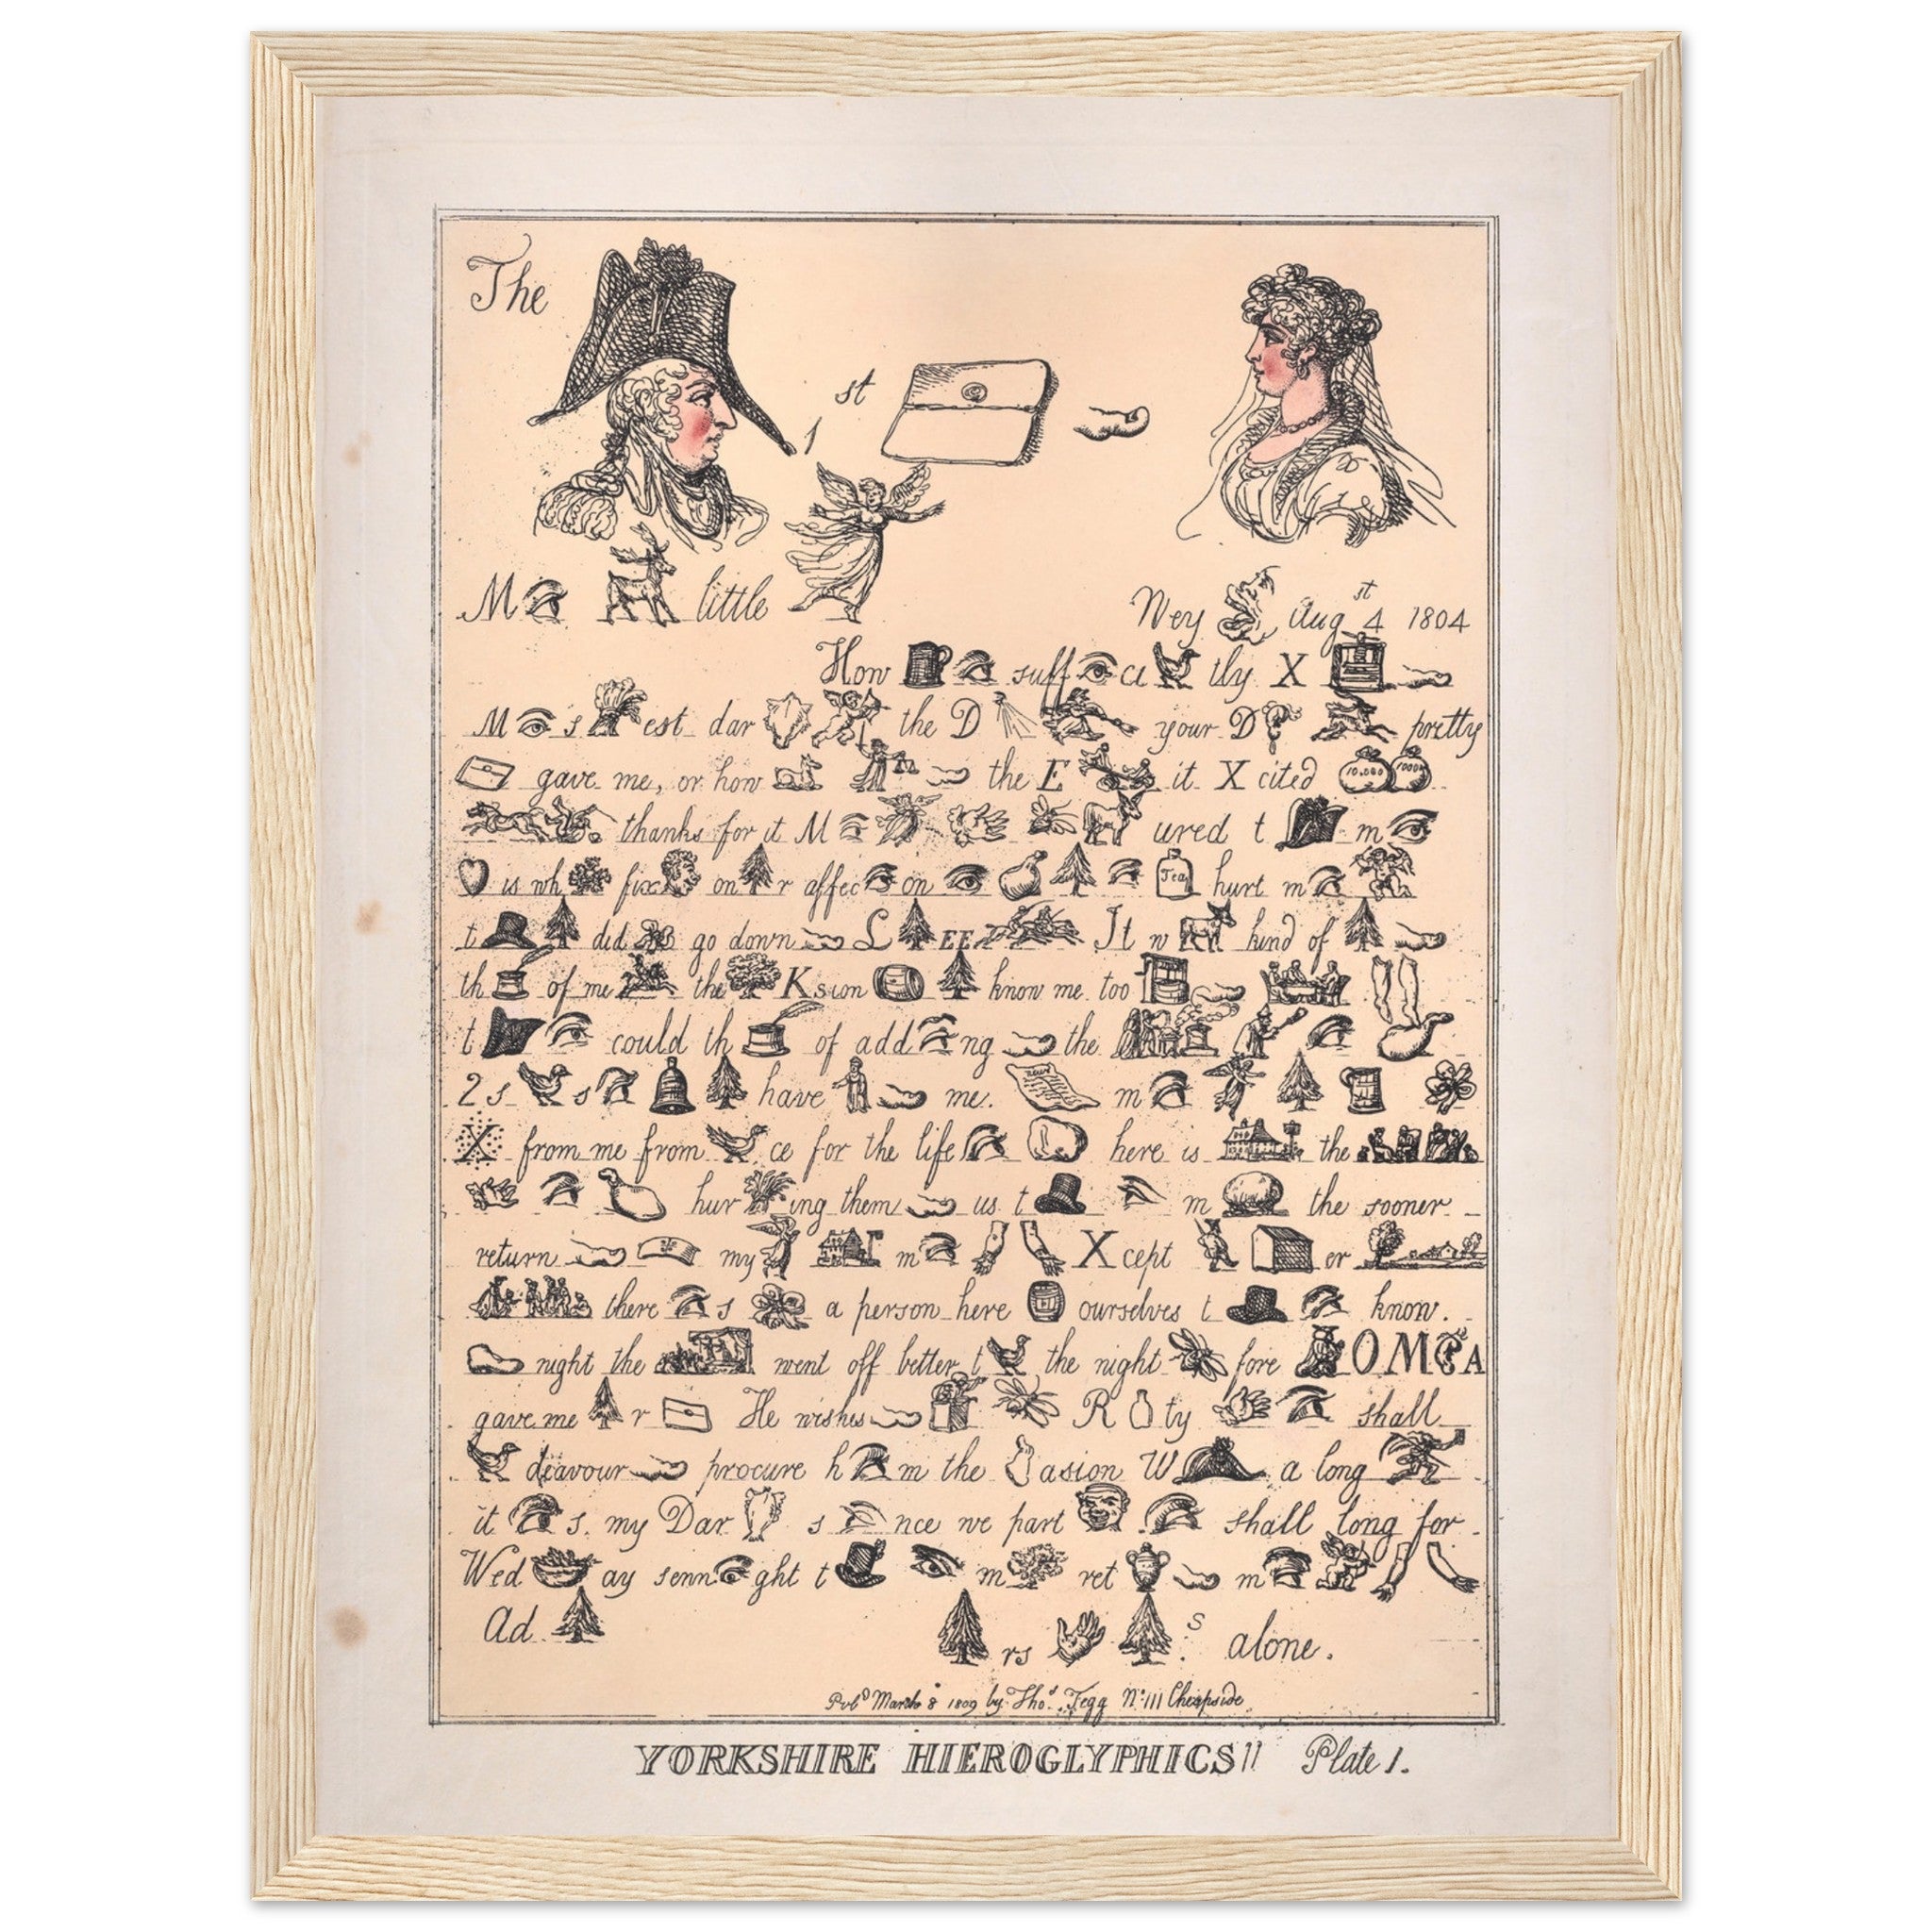 The
1 st
M little
Wey Aug st 4 1804
How suff ci tly X
M s est dar the D your D pretty
gave me, or how the E it X cited 10,000 1000
thanks for it M ured t m
is wh fix on r affec on Tea hurt m
t did go down L EE It w kind of
th of me the K sion know me too
t could th of add ng the
2 s s have me. m
X from me from ce for the life here is the
hur ing them us t m the sooner
return my m X cept or
there s a person here ourselves t know.
night the went off better t the night fore O M A
gave me r He wishes R ty shall
deavour procure h m the asion W a long
it s. my Dar s nce we part shall long for
Wed ay senn ght t m ret m
Ad rs s alone.
Pubd March 8 1809 by Thos. Tegg No. 111 Cheapside
YORKSHIRE HIEROGLYPHICS!! Plate 1.